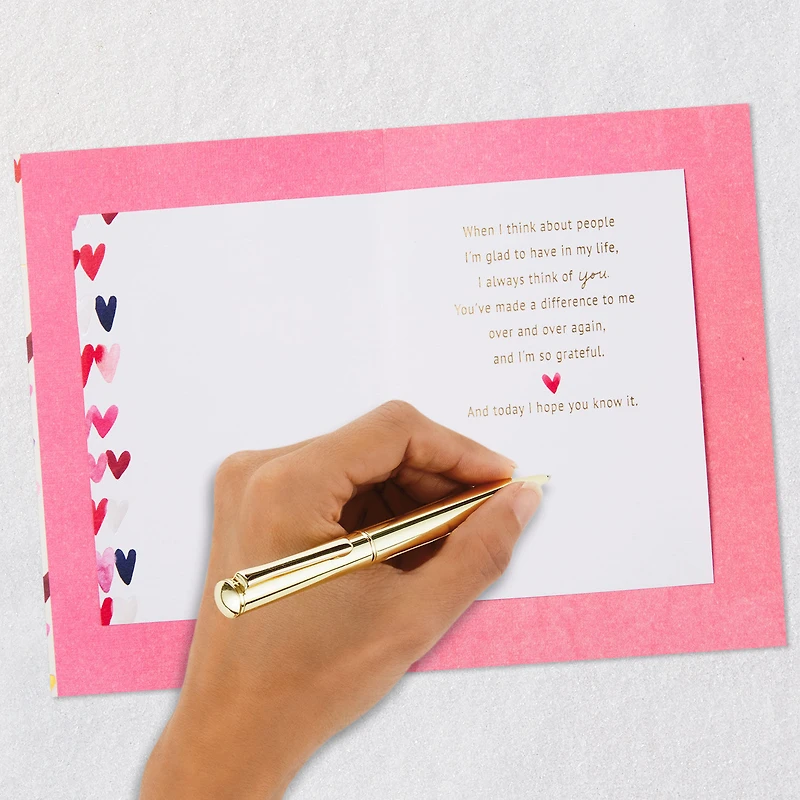 When I think about people
I'm glad to have in my life,
I always think of you.
You've made a difference to me
over and over again,
and I'm so grateful.
And today I hope you know it.